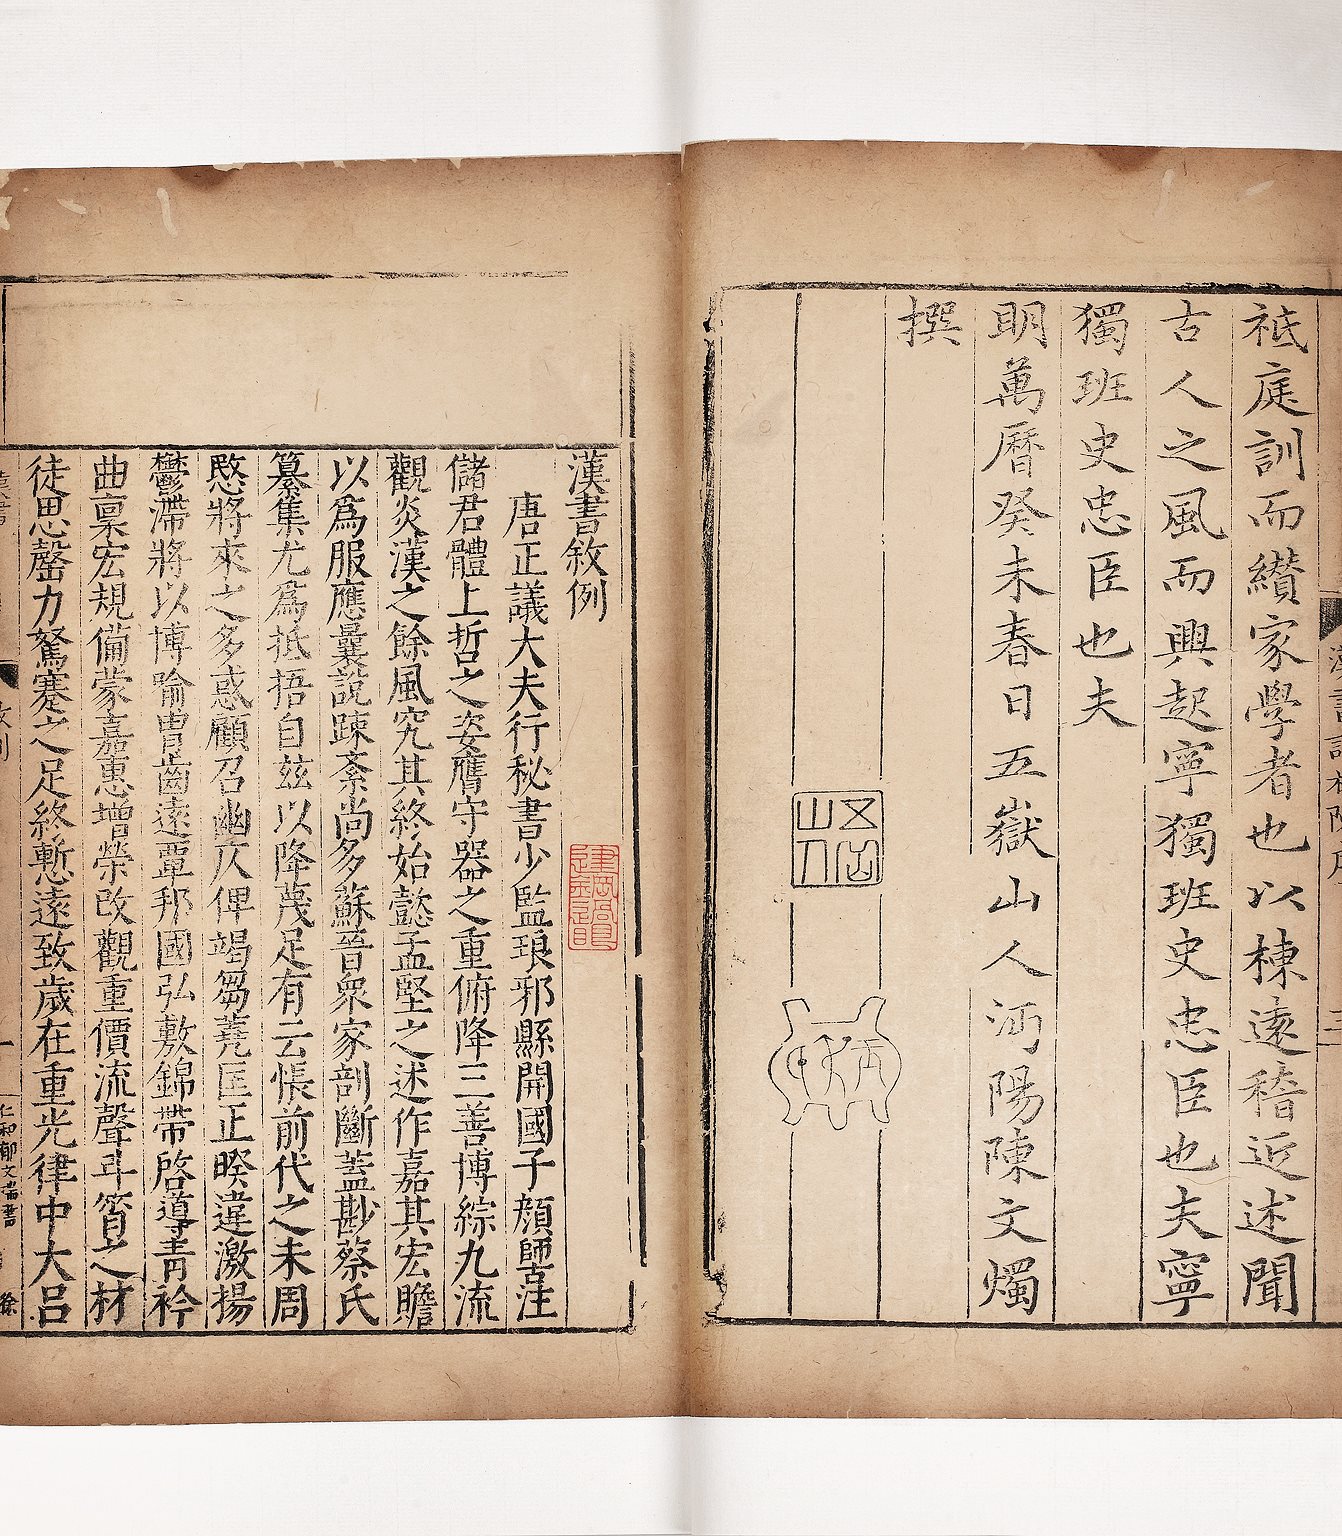 祗庭訓而纘家學者也以棟遠稽近述聞
古人之風而興起寧獨班史忠臣也夫寧
獨班史忠臣也夫
明萬曆癸未春日五嶽山人沔陽陳文燭
撰
五岳山人
漢書敘例
唐正議大夫行秘書少監琅邪縣開國子顏師古注
儲君體上哲之姿膺守器之重俯降三善博綜九流
觀炎漢之餘風究其終始懿孟堅之述作嘉其宏贍
以爲服應曩說踈紊尚多蘇晉衆家剖斷蓋尠蔡氏
纂集尤爲抵捂自茲以降蔑足有云悵前代之未周
愍將來之多惑顧召幽仄俾竭芻蕘匡正睽違激揚
鬱滯將以博喻胄齒遠覃邦國弘敷錦帶啓導青衿
曲稟宏規備蒙嘉惠增榮改觀重價流聲斗筲之材
徒思罄力駑蹇之足終慙遠致歲在重光律中大呂
仁和郁文瑞書
徐